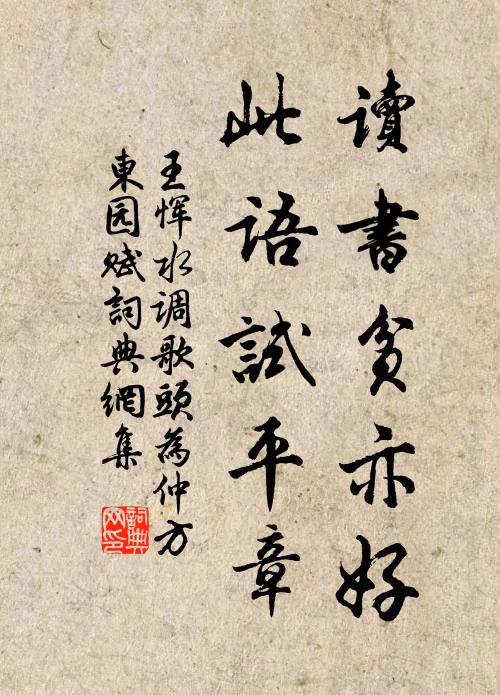 讀書貧亦好
此語試平章
王恽水调歌頭為仲方
東园赋詞典網集
詞典网印